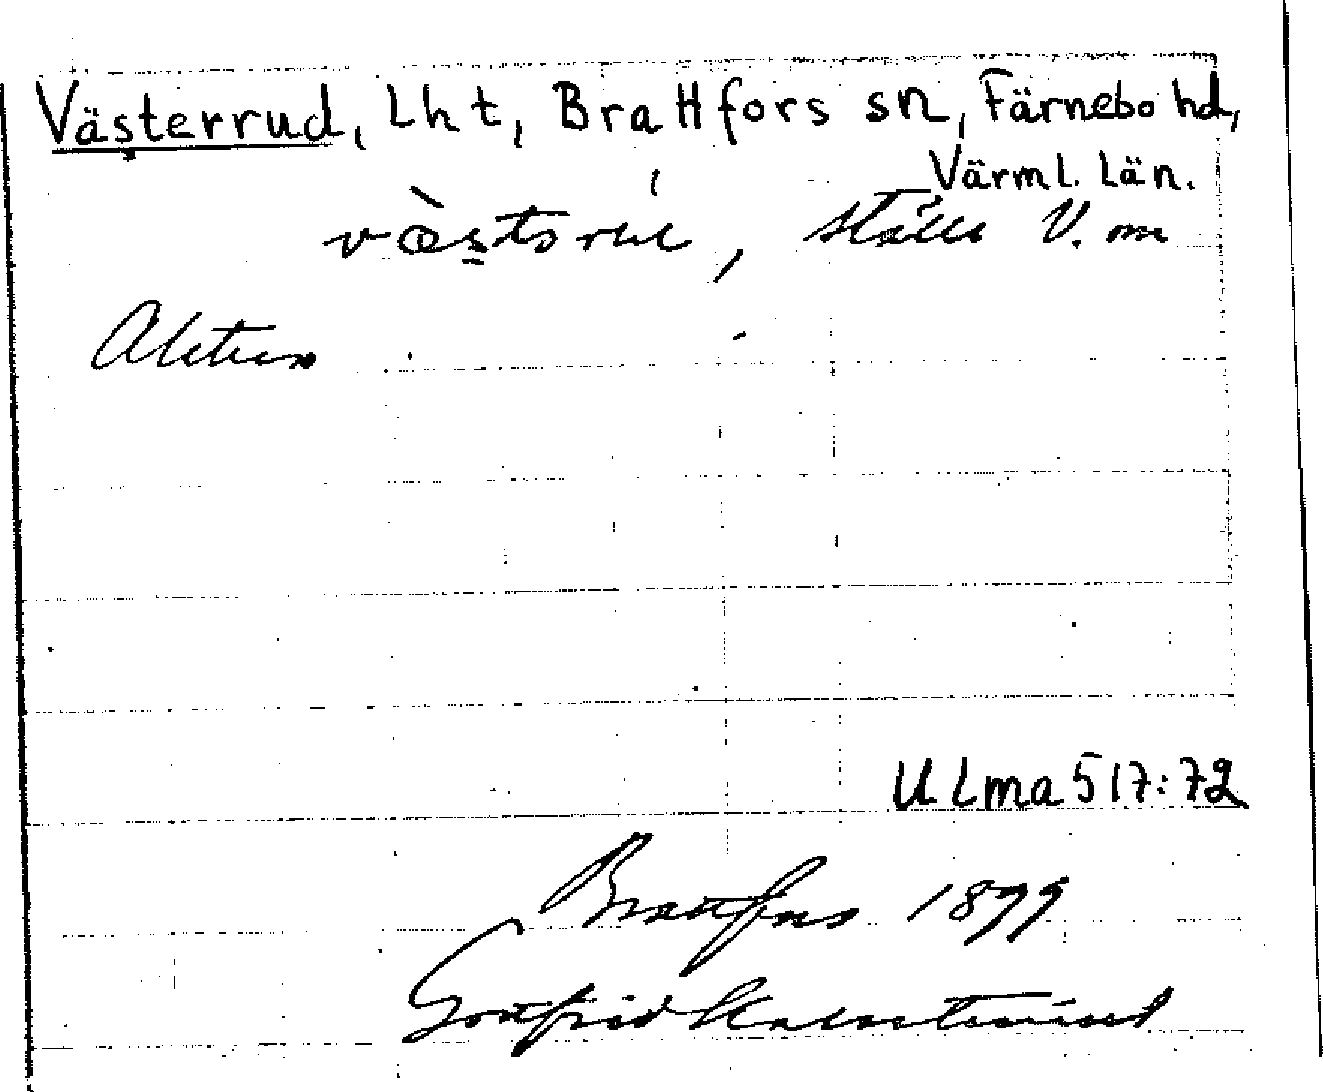 Västerrud, Lht, Brattfors sn, Färnebo hd,
Värml. län.
ställe V. om
Alstern
ULma 517:72
Brattfors 1899
Gottfrid Kallstenius